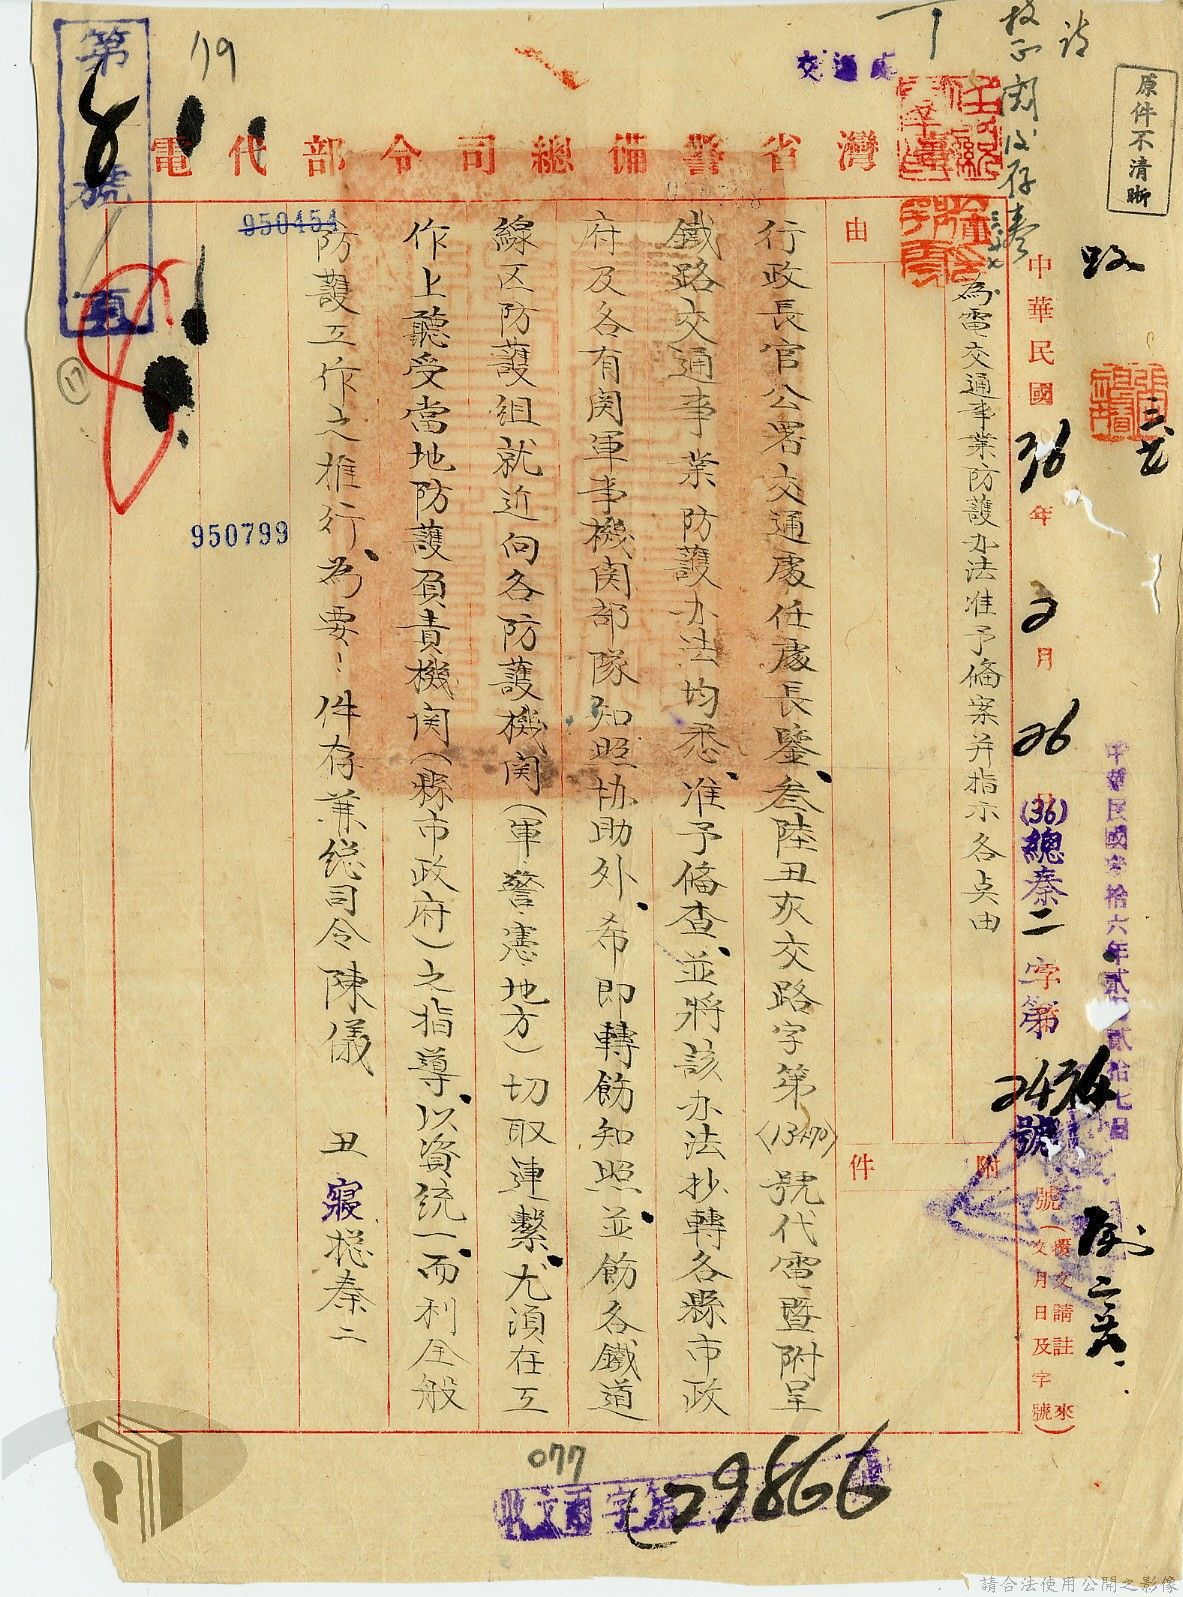 原件不清晰
中華民國36年2月26日
(36)總秦二字第2434號
號(覆文請註來
文月日及字號)
中華民國叁拾六年貳月貳拾七日
交通處
灣省警備總司令部代電
由
為電交通事業防護办法准予備案并指示各点由
附
件
行政長官公署交通處任處長鑒、叁陸丑亥交路字第(13470)號代電暨附呈
鐵路交通事業防護办法均悉、准予備查、並將該办法抄轉各縣市政
府及各有関軍事機関部隊知照协助外、希即轉飭知照、並飭各鐵道
線区防護組就近向各防護機関(軍警憲地方)切取連繫、尤須在工
作上聽受當地防護負責機関(縣市政府)之指導、以資統一、而利全般
防護工作之推行、為要!件存兼総司令陳儀 丑寢総秦二
第8號
頁
119
950454
950799
17
077
收文丙字第29866號
請合法使用公開之影像